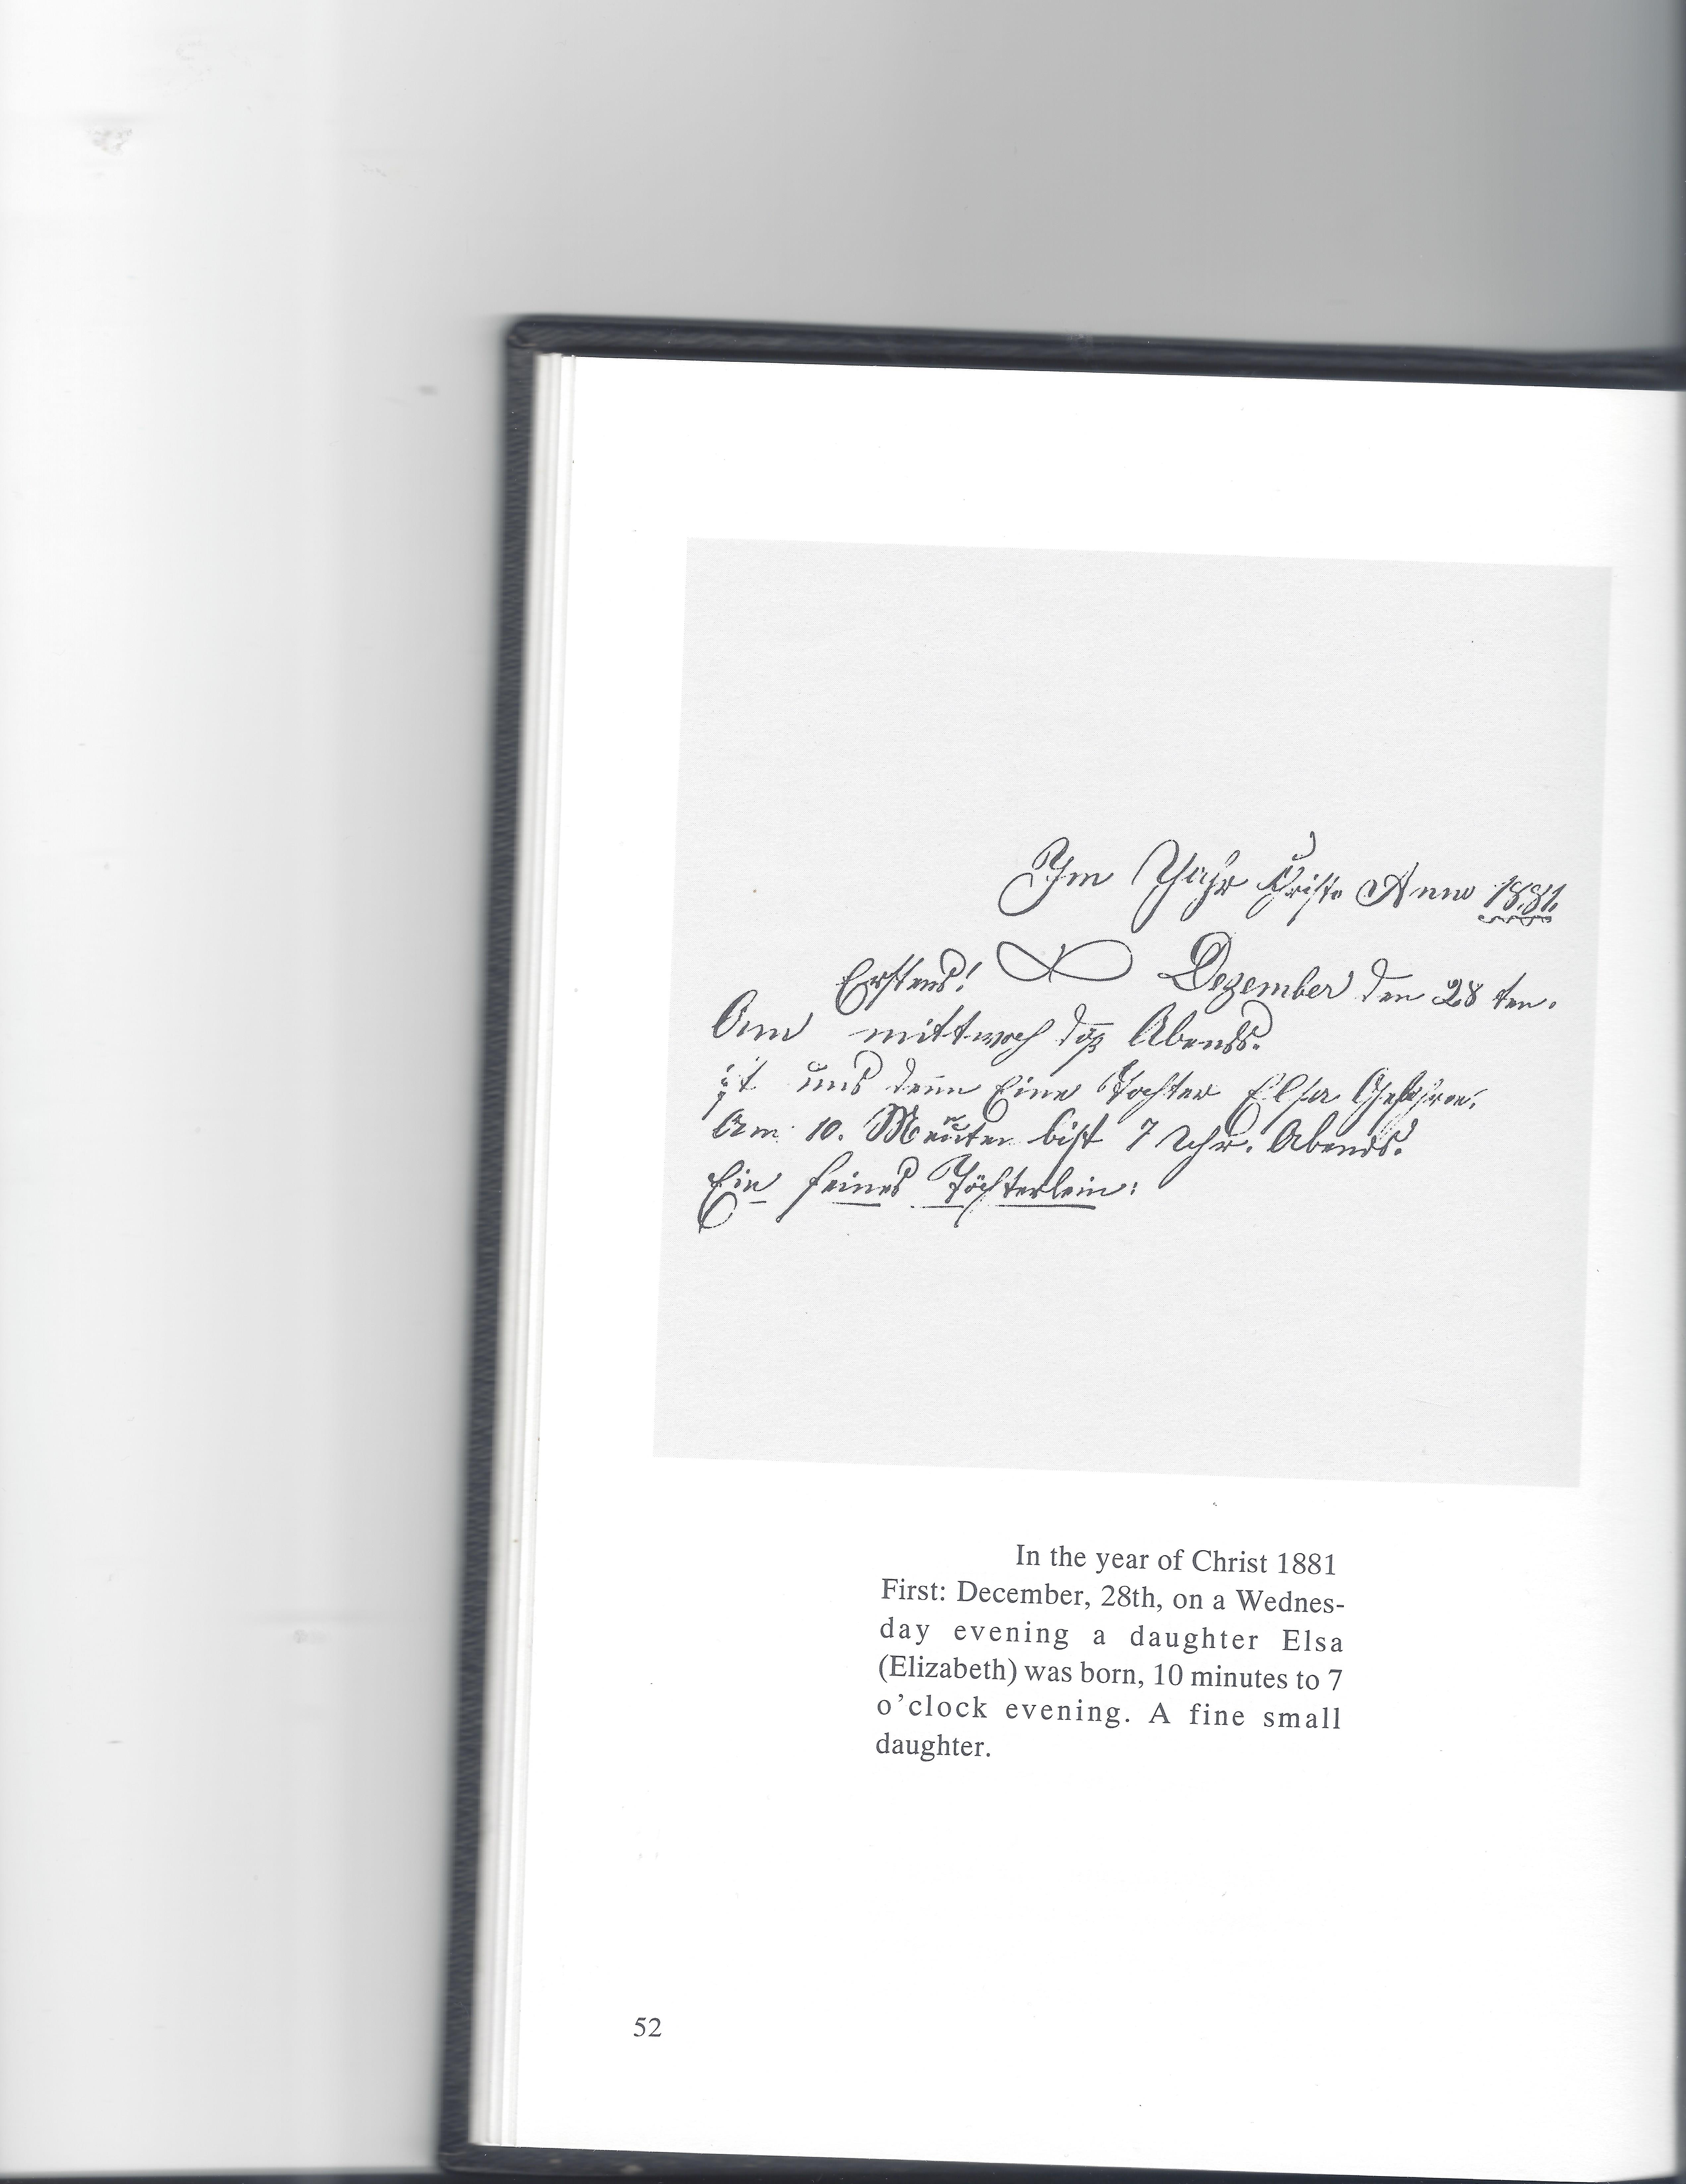 Im Jahr Christo Anno 1881.
Erstens! Dezember den 28 ten.
Am mittwoch daß Abends.
ist uns denn Eine Tochter Elsa Gebohren.
Am 10. Meüten bist 7 Uhr. Abends.
Ein feines Töchterlein:
In the year of Christ 1881
First: December, 28th, on a Wednes-
day evening a daughter Elsa
(Elizabeth) was born, 10 minutes to 7
o'clock evening. A fine small
daughter.
52